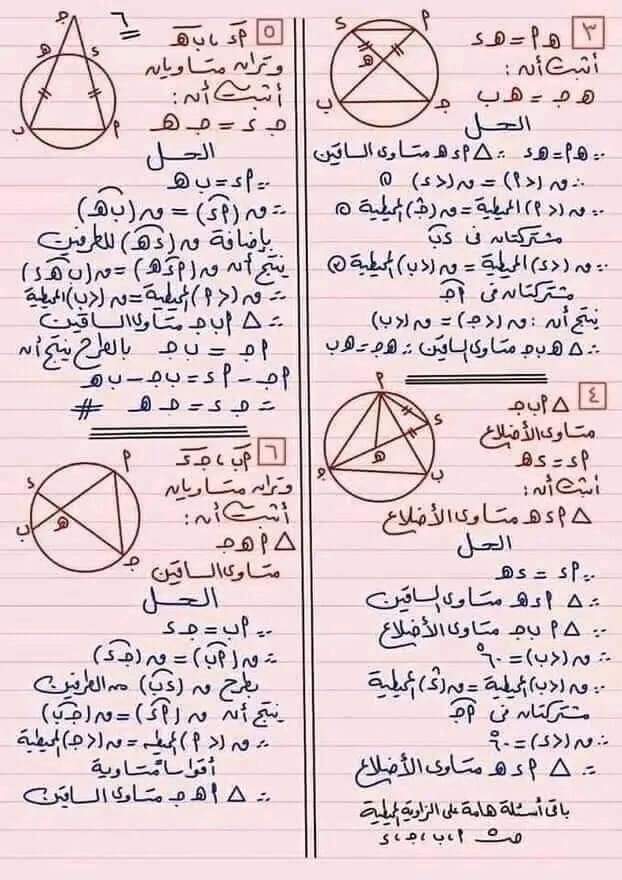 ٣ هـ م = هـ د
أثبت أنه :
هـ جـ = هـ ب
الحل
∵ هـ م = هـ د ∴ △ م د هـ متساوى الساقين
∴ ق (∠م) = ق (∠د) ①
∵ ق (∠م) المحيطية = ق (∠جـ) المحيطية ②
مشتركتان فى د ب
∵ ق (∠د) المحيطية = ق (∠ب) المحيطية ③
مشتركتان م جـ
ينتج أن : ق (∠جـ) = ق (∠ب)
∴ △ هـ ب جـ متساوى الساقين ∴ هـ جـ = هـ ب
٤ △ م ب جـ
متساوى الأضلاع
م د = د هـ
أثبت أنه :
△ م د هـ متساوى الأضلاع
الحل
∵ م د = د هـ
∴ △ م د هـ متساوى الساقين
∵ △ م ب جـ متساوى الأضلاع
∴ ق (∠ب) = ٦٠°
∵ ق (∠ب) المحيطية = ق (∠د) المحيطية
مشتركتان فى م جـ
∴ ق (∠د) = ٦٠°
∴ △ م د هـ متساوى الأضلاع
باقى أسئلة هامة على الزاوية المحيطية
م ، ب ، جـ ، د
٥ م د ، ب هـ
وتران متساويان
أثبت أنه :
جـ د = جـ هـ
الحل
∵ م د = ب هـ
∴ ق (م د) = ق (ب هـ)
بإضافة ق (د هـ) للطرفين
ينتج أن ق (م د هـ) = ق (ب هـ د)
∴ ق (∠م) المحيطية = ق (∠ب) المحيطية
∴ △ م ب جـ متساوى الساقين
م جـ = ب جـ بالطرح ينتج أن
م جـ - م د = ب جـ - ب هـ
∴ جـ د = جـ هـ #
٦ م ب ، جـ د
وتران متساويان
أثبت أنه :
△ م هـ جـ
متساوى الساقين
الحل
∵ م ب = جـ د
∴ ق (م ب) = ق (جـ د)
بطرح ق (د ب) من الطرفين
ينتج أن ق (م د) = ق (جـ ب)
∴ ق (∠م) المحيطية = ق (∠جـ) المحيطية
أقواسا متساوية
∴ △ م هـ جـ متساوى الساقين